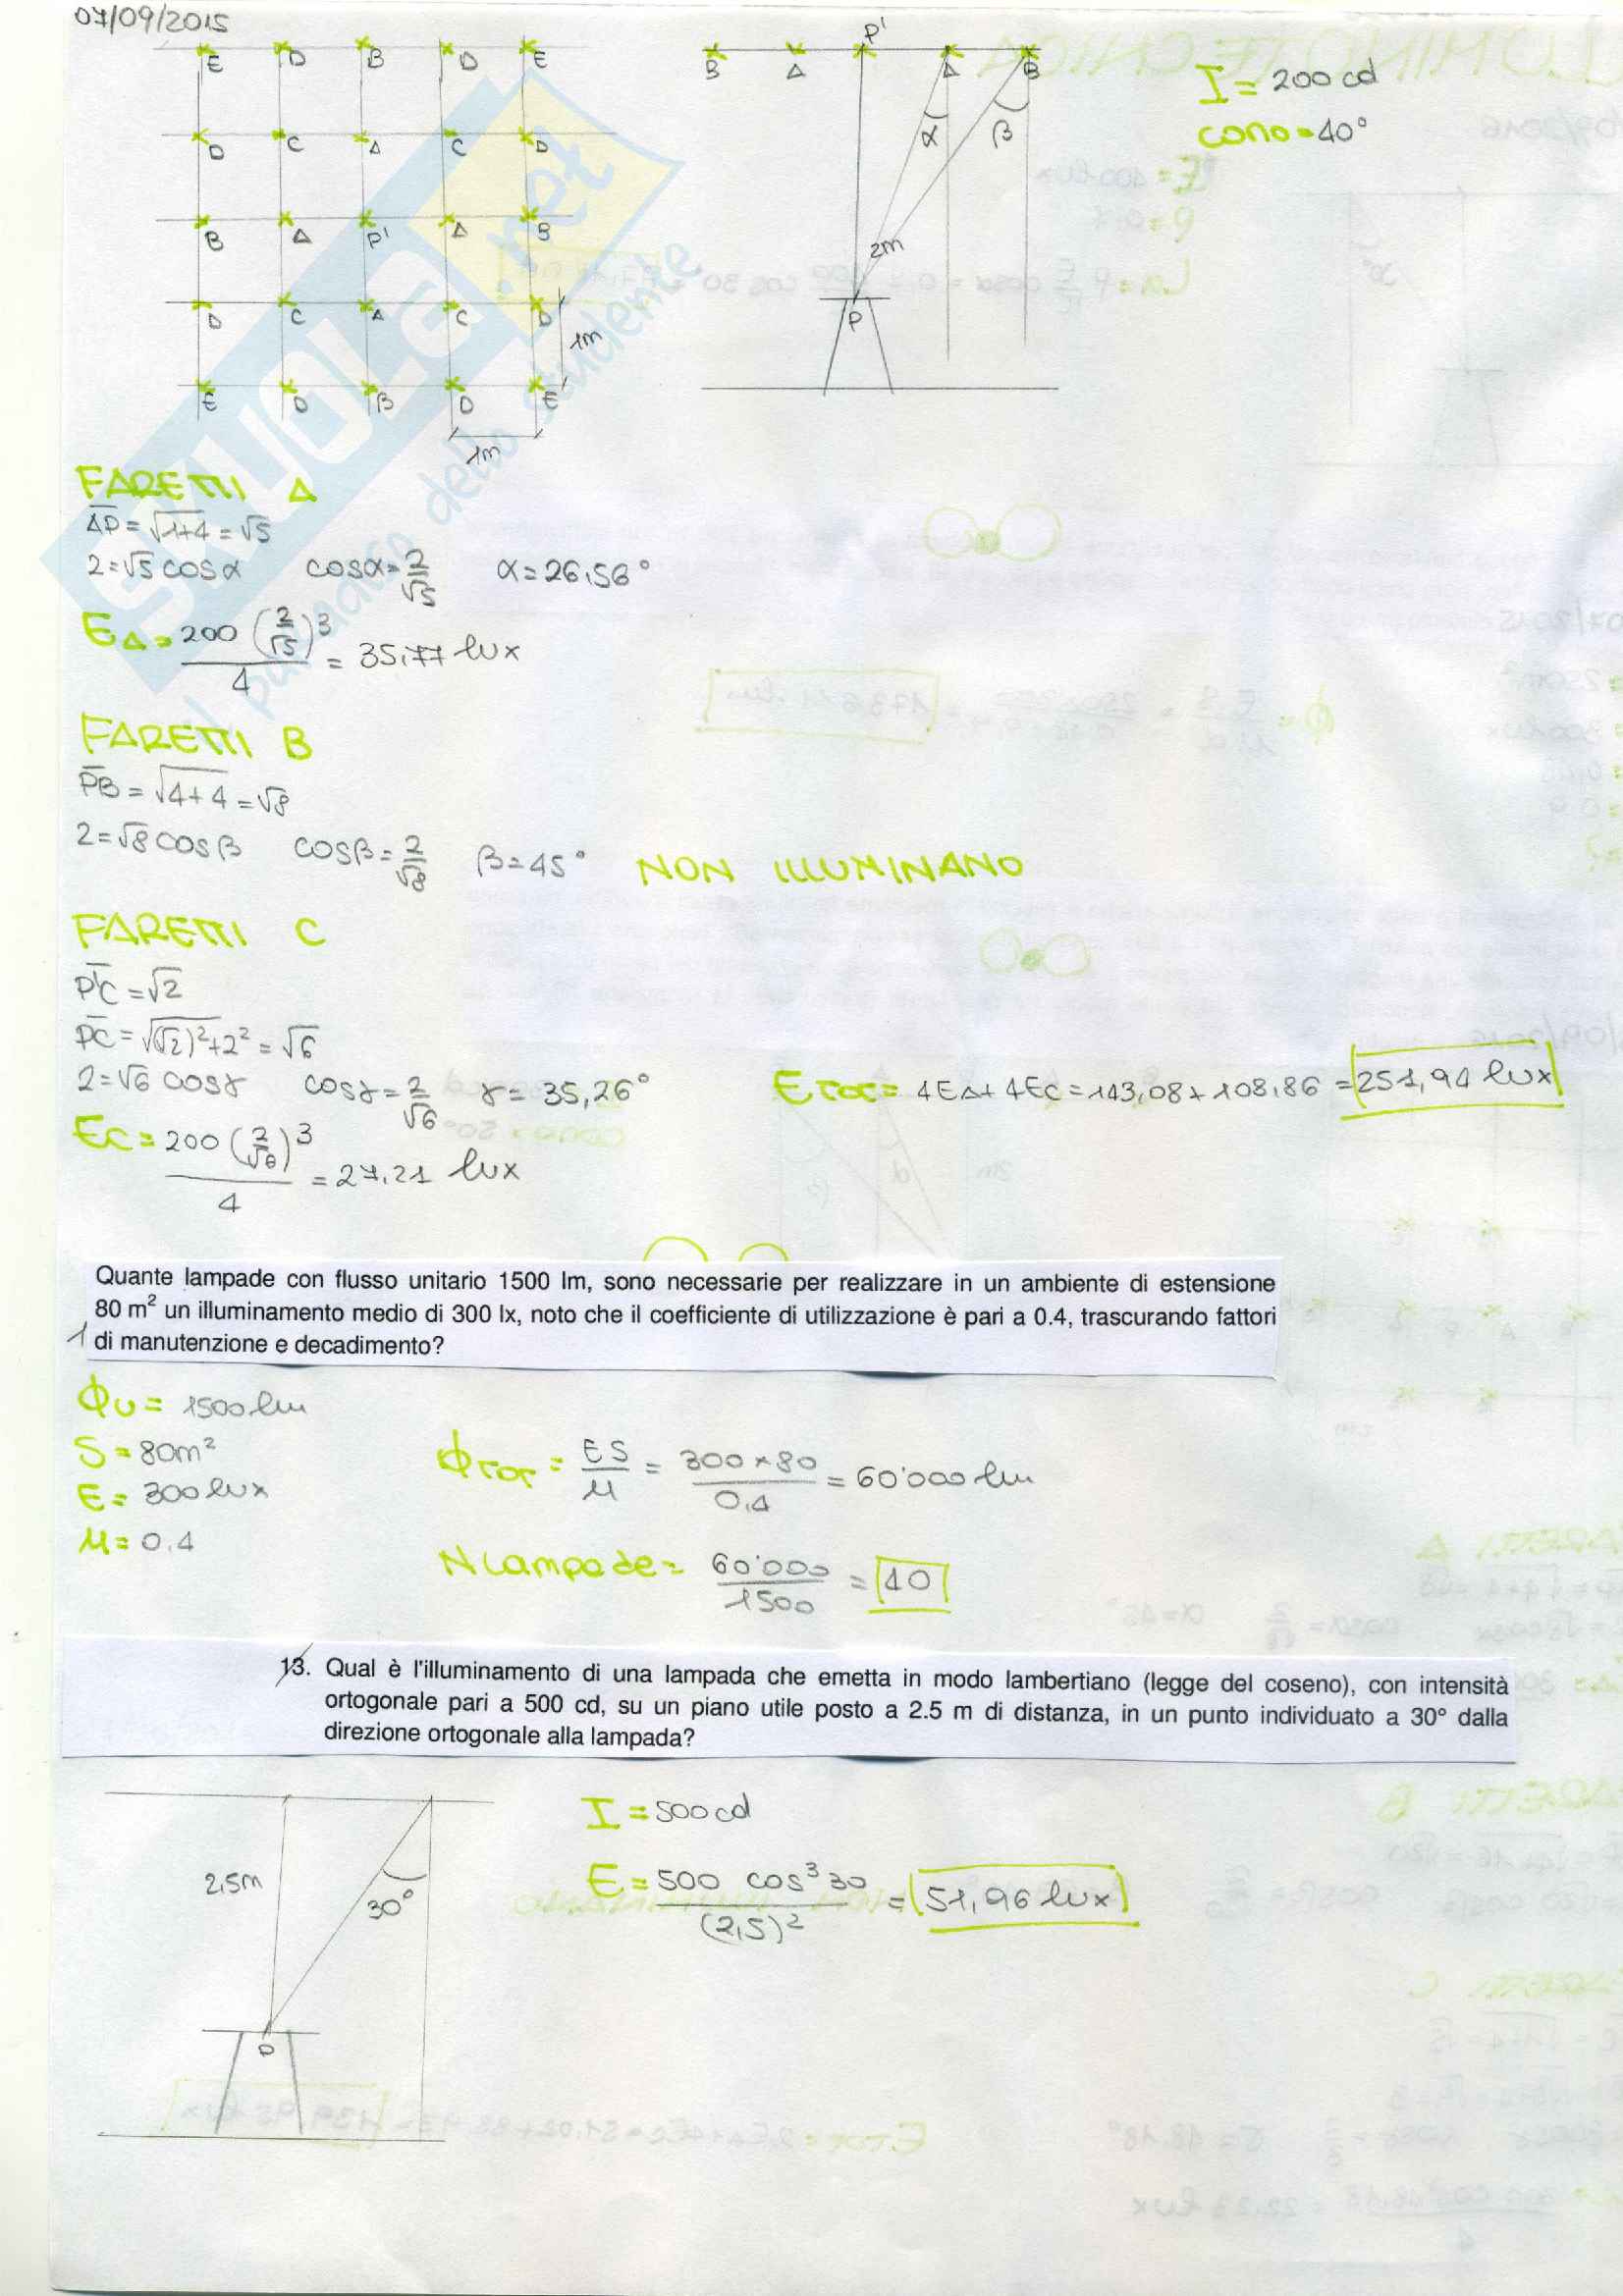 07/09/2015
E D B D E
D C A C D
B A P' A B
D C A C D
E D B D E
1m
1m
B A P' A B
α β
2m
P
I = 200 cd
cono = 40°
FARETTI A
AP = √1+4 = √5
2 = √5 cos α cos α = 2/√5 α = 26,56°
EA = 200 (2/√5)³ / 4 = 35,77 lux
FARETTI B
PB = √4+4 = √8
2 = √8 cos β cos β = 2/√8 β = 45° NON ILLUMINANO
FARETTI C
P'C = √2
PC = √(√2)²+2² = √6
2 = √6 cos γ cos γ = 2/√6 γ = 35,26°
ETOT = 4EA + 4EC = 143,08 + 108,86 = 251,94 lux
EC = 200 (2/√6)³ / 4 = 27,21 lux
Quante lampade con flusso unitario 1500 lm, sono necessarie per realizzare in un ambiente di estensione
80 m² un illuminamento medio di 300 lx, noto che il coefficiente di utilizzazione è pari a 0.4, trascurando fattori
di manutenzione e decadimento?
ΦU = 1500 lm
S = 80m²
E = 300 lux
μ = 0.4
ΦTOT = ES/μ = 300 × 80 / 0.4 = 60'000 lm
N lampade = 60'000 / 1500 = 40
13. Qual è l'illuminamento di una lampada che emetta in modo lambertiano (legge del coseno), con intensità
ortogonale pari a 500 cd, su un piano utile posto a 2.5 m di distanza, in un punto individuato a 30° dalla
direzione ortogonale alla lampada?
2,5m
30°
P
I = 500 cd
E = 500 cos³ 30 / (2,5)² = 51,96 lux
SKUOLA.net
Il paradiso dello studente